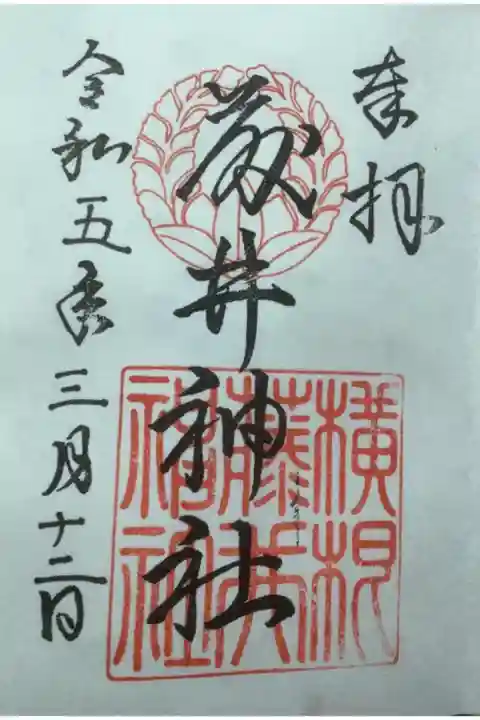 奉拝
藤井神社
横根
藤井
神社
令和五年三月十二日